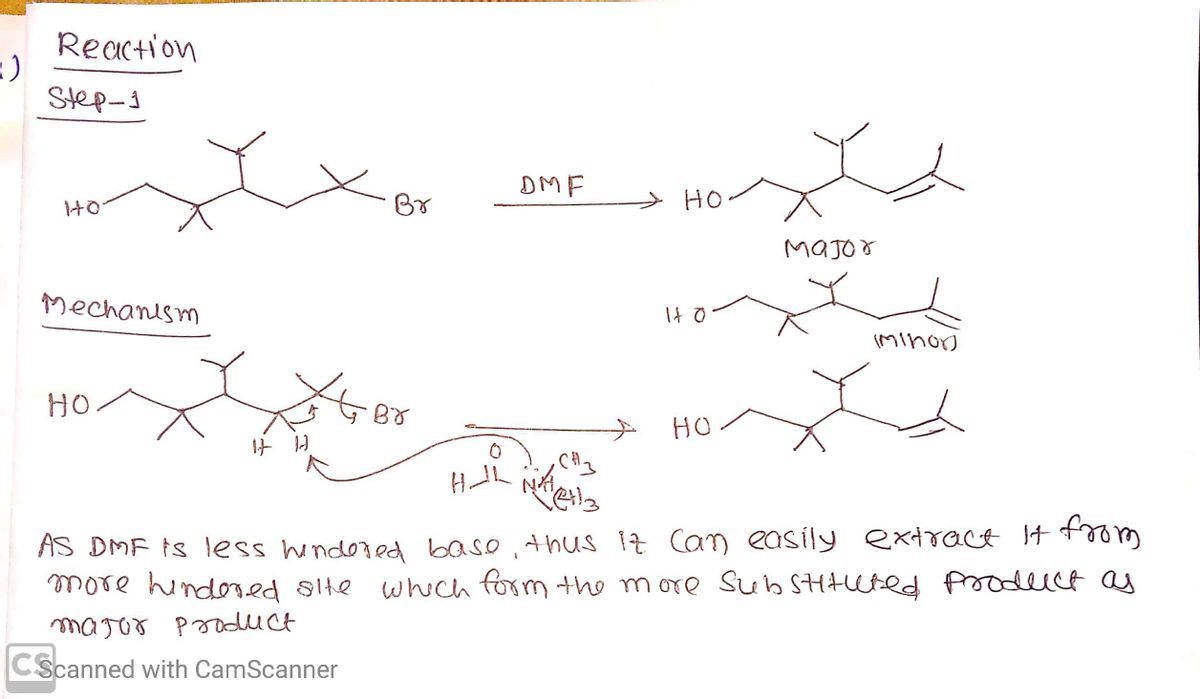 Reaction
Step-1
HO
Br
DMF
HO
Major
Mechanism
HO
(Minor)
HO
H H
Br
O
H N CH3
CH3
HO
AS DMF is less hindered base, thus it can easily extract H from
more hindered site which form the more substituted product as
major product
CS Scanned with CamScanner